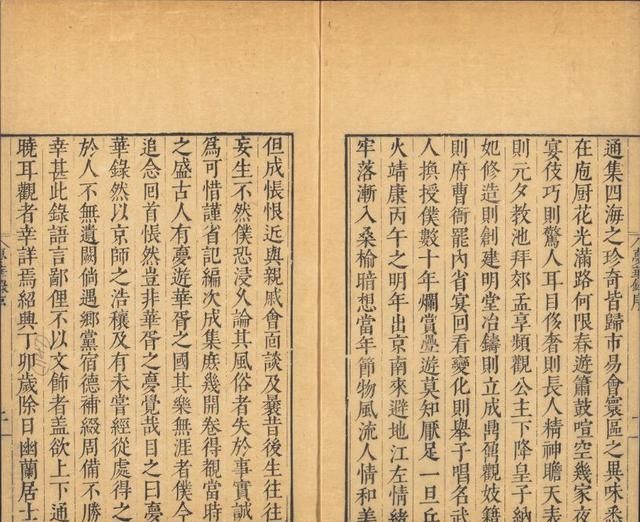 夢華錄序
通集四海之珍奇皆歸市易會寰區之異味悉
在庖厨花光滿路何限春遊簫鼓喧空幾家夜
宴伎巧則驚人耳目侈奢則長人精神瞻天表
則元夕教池拜郊孟享頻觀公主下降皇子納
妃修造則創建明堂冶鑄則立成鼎鼐觀妓籍
則府曹衙罷內省宴回看變化則舉子唱名武
人換授僕數十年爛賞疊遊莫知厭足一旦兵
火靖康丙午之明年出京南來避地江左情緒
牢落漸入桑榆暗想當年節物風流人情和美
但成悵恨近與親戚會面談及曩昔後生往往
妄生不然僕恐浸久論其風俗者失於事實誠
爲可惜謹省記編次成集庶幾開卷得覩當時
之盛古人有夢遊華胥之國其樂無涯者僕今
追念回首悵然豈非華胥之夢覺哉目之曰夢
華錄然以京師之浩穰及有未嘗經從處得之
於人不無遺闕倘遇鄉黨宿德補綴周備不勝
幸甚此錄語言鄙俚不以文飾者蓋欲上下通
曉耳觀者幸詳焉紹興丁卯歲除日幽蘭居士